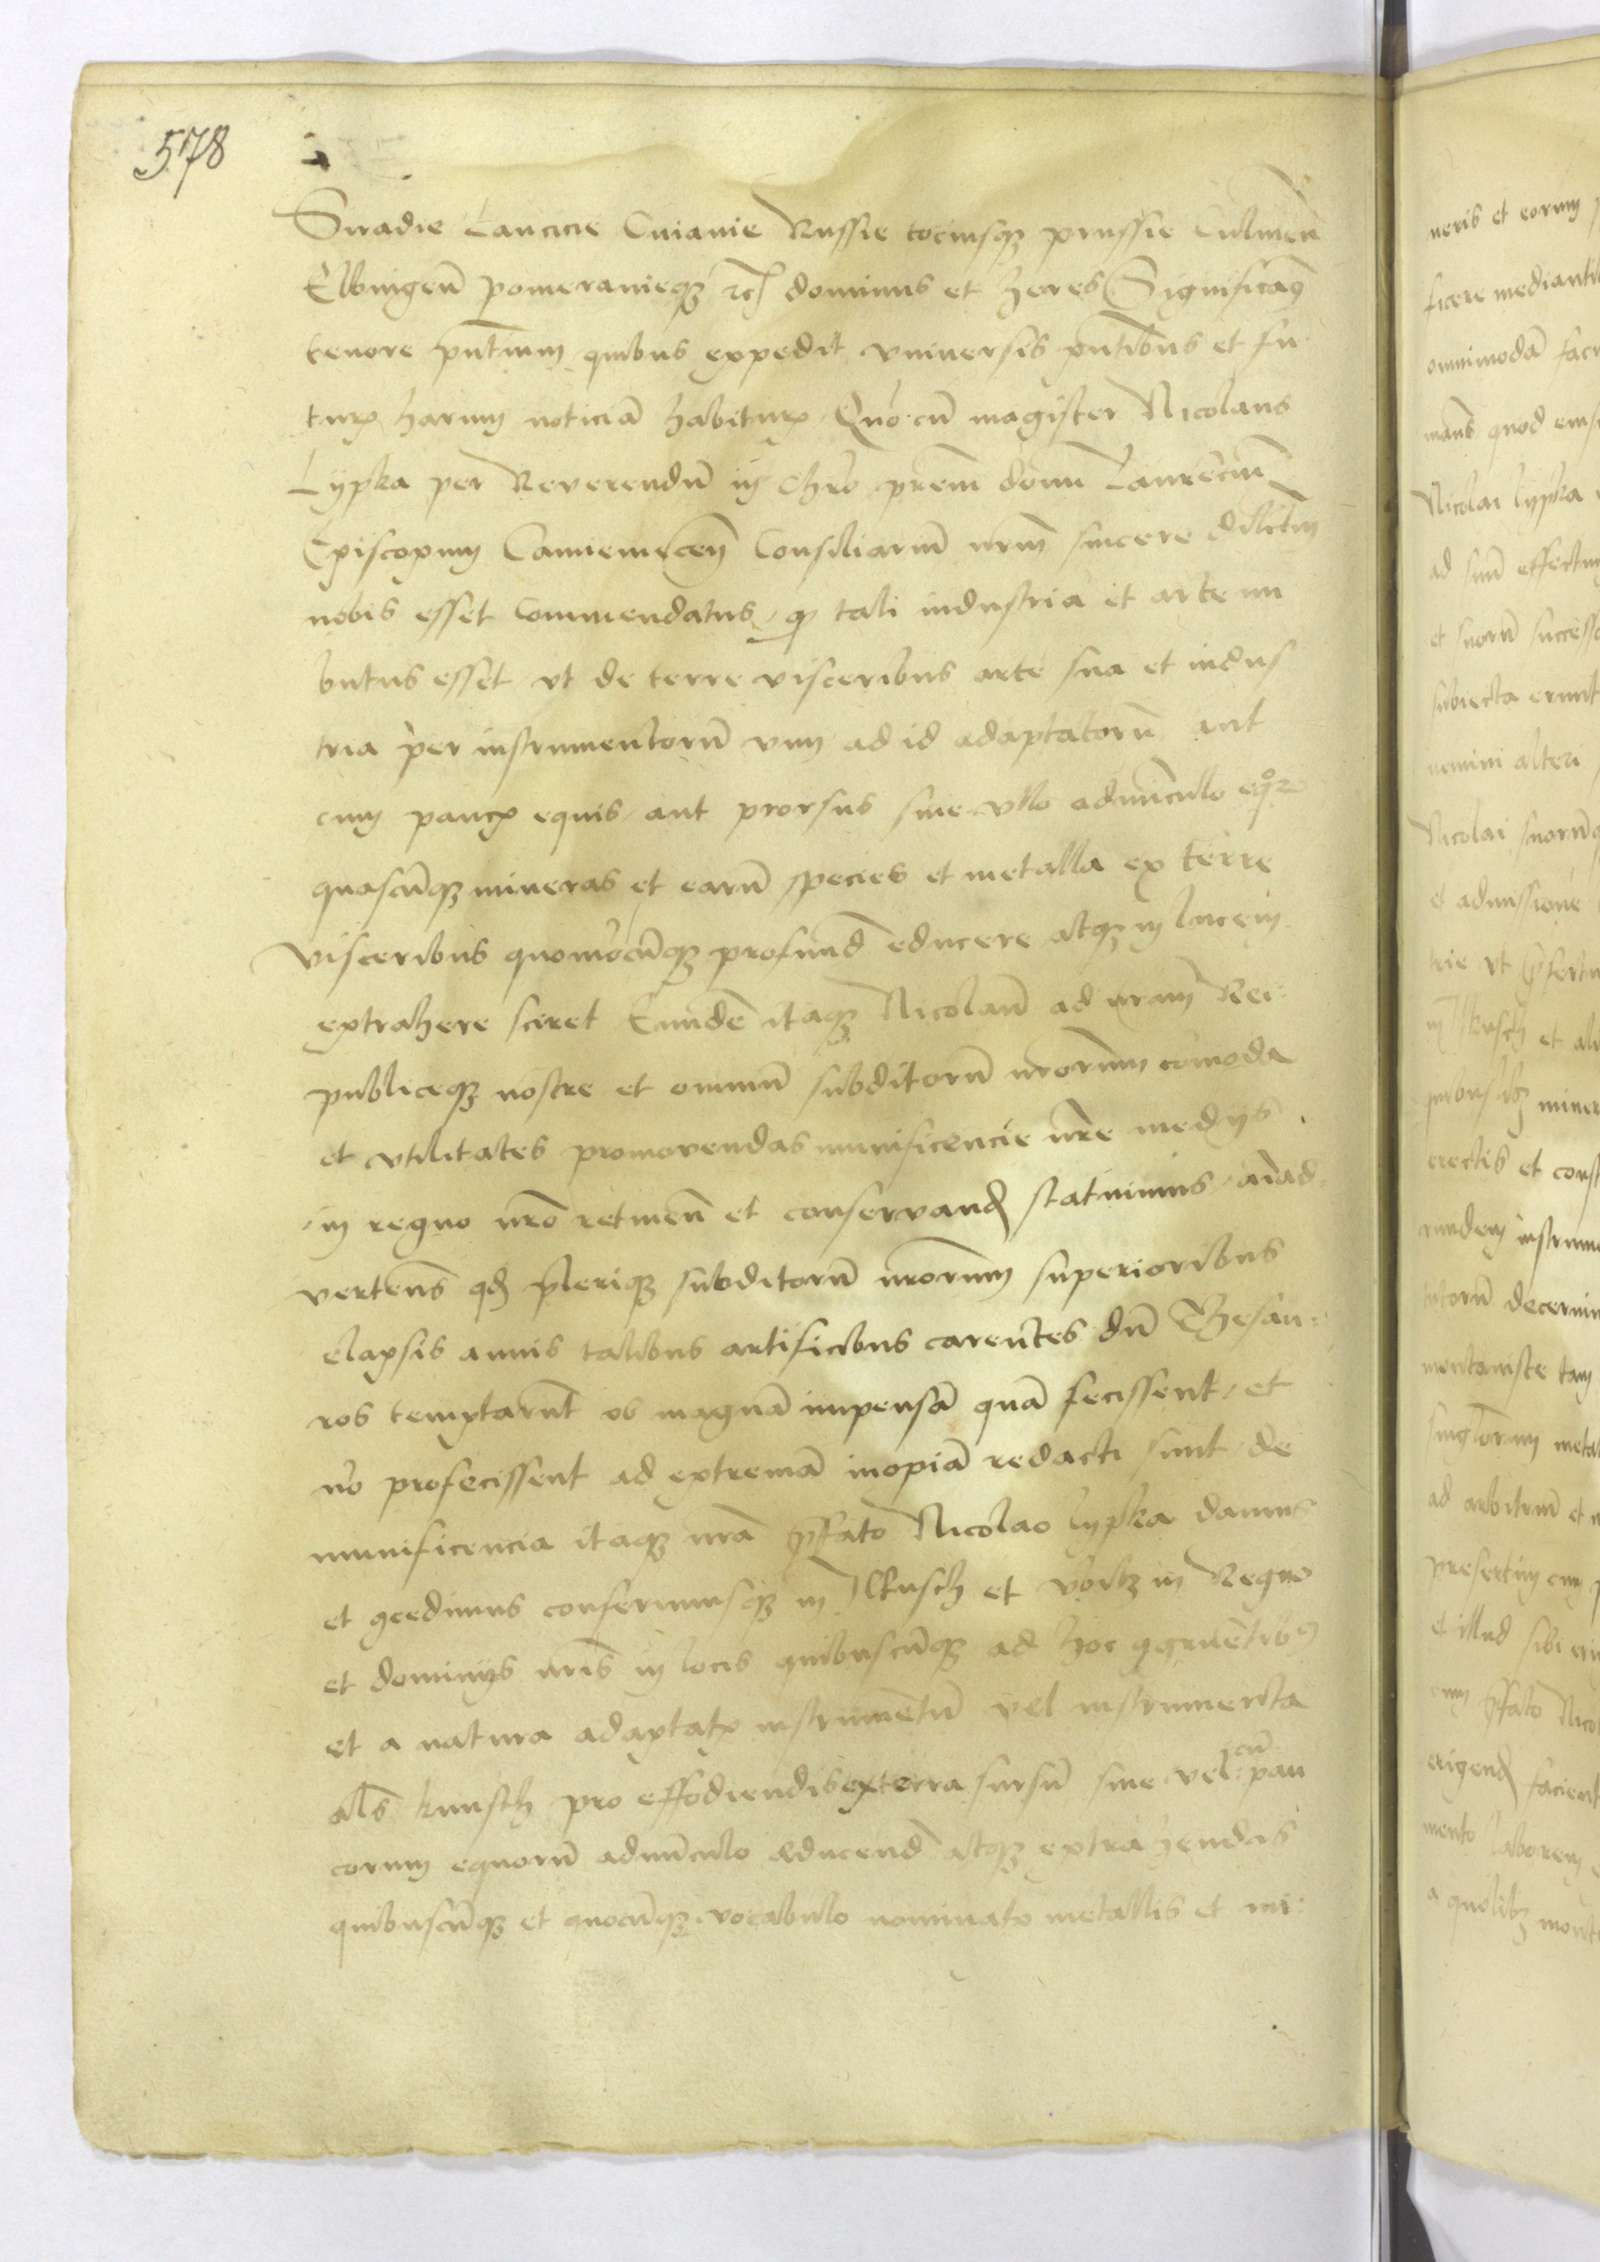 578
Siradie Lancicie Cuiavie Russie tociusq3 prussie Culmen̄
Elbingen̄ pomeranieq3 etc dominus et heres Significam9
tenore pn̄tium quibus expedit vniversis pn̄tibus et fu
turis harum noticiā habituris Quō cū magister Nicolaus
Lypka per Reverendū in chr̄o prēm dom̄ Laurēciū
Episcopum Cammenecen̄ Consiliariū nrm̄ sincere dilctm̄
nobis esset Commendatus q tali industria et arte im
butus esset vt de terre visceribus arte sua et indus
tria per instrumentorū vim ad id adaptatorū aut
cum paucis equis aut prorsus sine vllo adminiculo eqor
quascūq3 mineras et earū species et metalla ex terre
visceribus quomōcūq3 profund̄ educere atq3 in lucem
extrahere sciret Eundē itaq3 Nicolaū ad nram̄ Rei
publiceq3 nostre et omniū subditorū nrorum̄ cōmoda
et vtilitates promovendas munificencie nre̅ medijs
in regno nrō retinen̄ et conservand statuimus aīad
verten̄s qd plerique subditorū nrorum̄ superioribus
elapsis annis talibus artificibus carentes dū Thesau
ros temptarūt ob magnā impensā quā fecissent et
nō profecissent ad extremā inopiā redacti sunt de
munificencia itaq3 nrā p̄fato Nicolao lypka damus
et 9cedimus conferimusq3 in Ilkusch et vbilz in Regno
et dominijs nris̄ in locis quibuscūq3 ad hoc 9gruentib9
et a natura adaptatis instrumētū vel instrumenta
als̄ kunsth pro effodiendis ex terra sursū sine vel cū pau
corum equorū adminiculo educend̄ atq3 extrahendis
quibuscūq3 et quocūq3 vocabulo nominatis metallis et mi
neris et eorum
ficere mediantib
omnimodā facu
man̄s quod eius
Nicolai lypka
ad suū effectum
et suorū successo
subiecta erunt
nemini alteri
Nicolai suorūq
et admissione
trie vt p̄fertu
in Ilkusch et ali
miner
erectis et const
rundem instrume
torū decernim
montaniste tam
singulorum metal
ad arbitriū et
presertim cum
et illud sibi
cum p̄fato Nicol
erigend facient
mento laborem
a quolibz monte